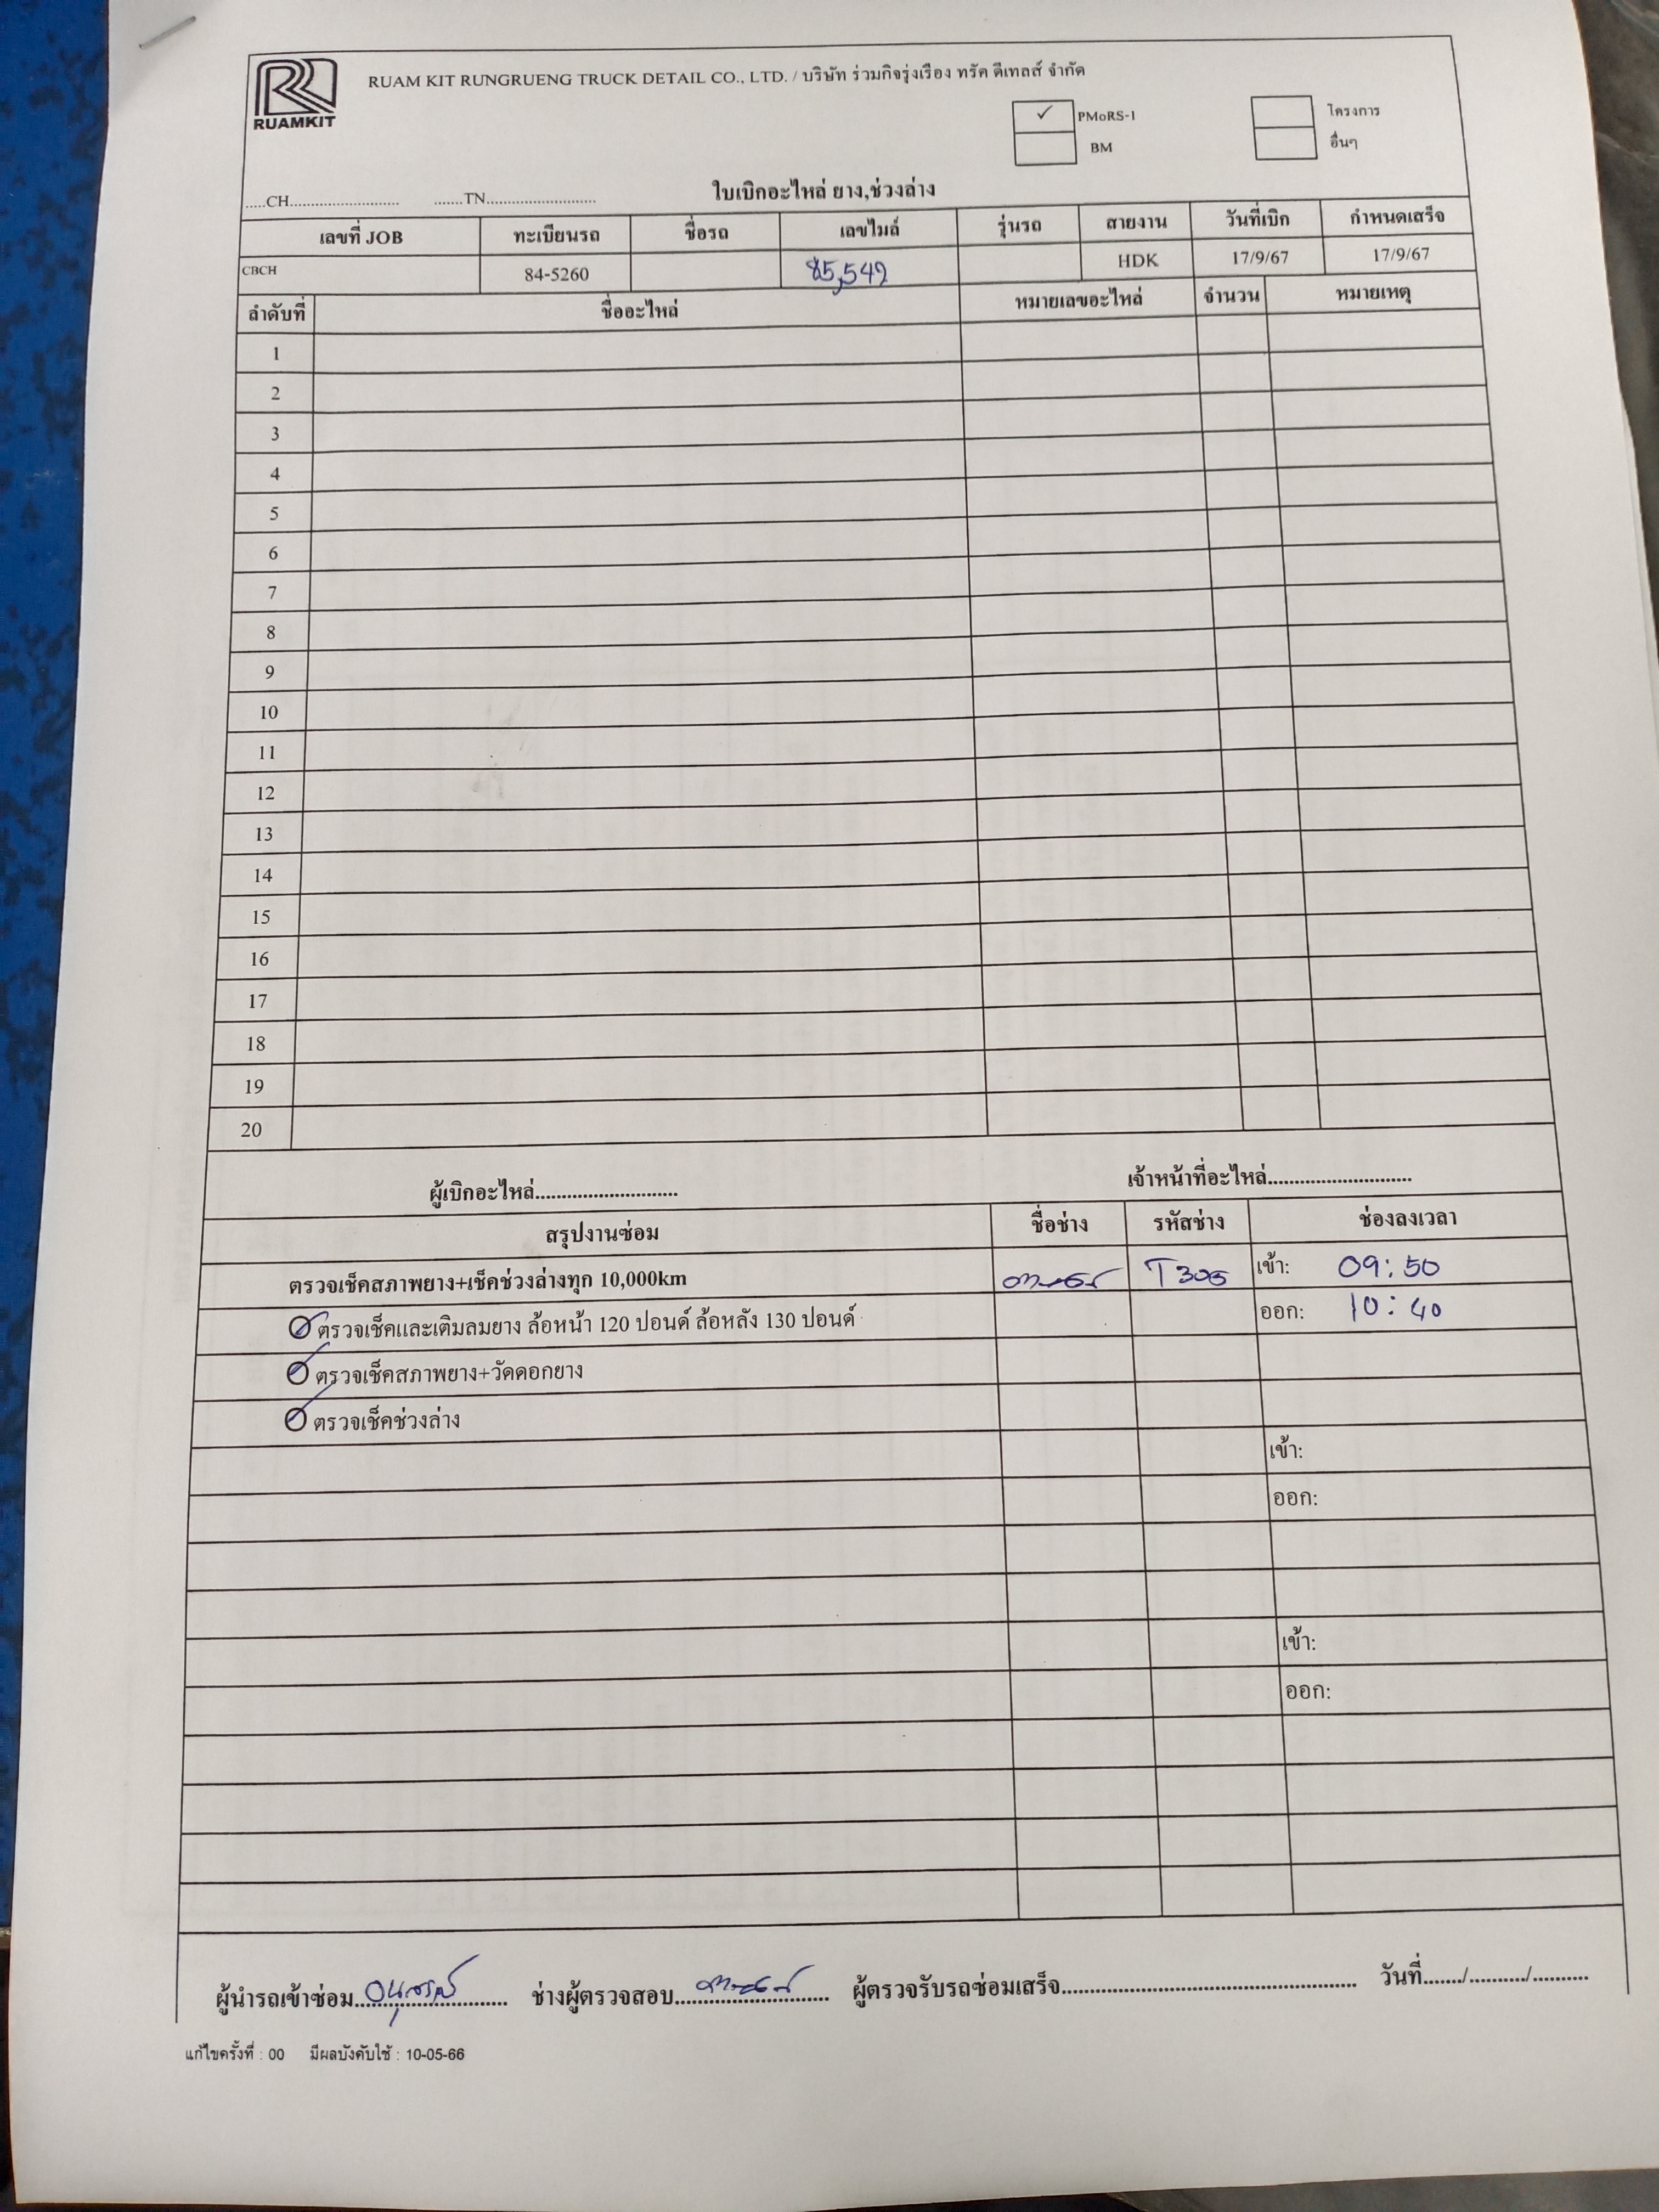 RUAMKIT
RUAM KIT RUNGRUENG TRUCK DETAIL CO., LTD. / บริษัท ร่วมกิจรุ่งเรือง ทรัค ดีเทลส์ จำกัด
✓ PMoRS-1 โครงการ
BM อื่นๆ
.....CH.......................... .......TN.......................... ใบเบิกอะไหล่ ยาง,ช่วงล่าง
เลขที่ JOB ทะเบียนรถ ชื่อรถ เลขไมล์ รุ่นรถ สายงาน วันที่เบิก กำหนดเสร็จ
CBCH 84-5260 85,549 HDK 17/9/67 17/9/67
ลำดับที่ ชื่ออะไหล่ หมายเลขอะไหล่ จำนวน หมายเหตุ
1
2
3
4
5
6
7
8
9
10
11
12
13
14
15
16
17
18
19
20
ผู้เบิกอะไหล่........................... เจ้าหน้าที่อะไหล่...........................
สรุปงานซ่อม ชื่อช่าง รหัสช่าง ช่องลงเวลา
ตรวจเช็คสภาพยาง+เช็คช่วงล่างทุก 10,000km T305 เข้า: 09:50
ตรวจเช็คและเติมลมยาง ล้อหน้า 120 ปอนด์ ล้อหลัง 130 ปอนด์ ออก: 10:40
ตรวจเช็คสภาพยาง+วัดดอกยาง
ตรวจเช็คช่วงล่าง
เข้า:
ออก:
เข้า:
ออก:
ผู้นำรถเข้าซ่อม............................. ช่างผู้ตรวจสอบ............................. ผู้ตรวจรับรถซ่อมเสร็จ........................................................ วันที่......./........../..........
แก้ไขครั้งที่ : 00 มีผลบังคับใช้ : 10-05-66